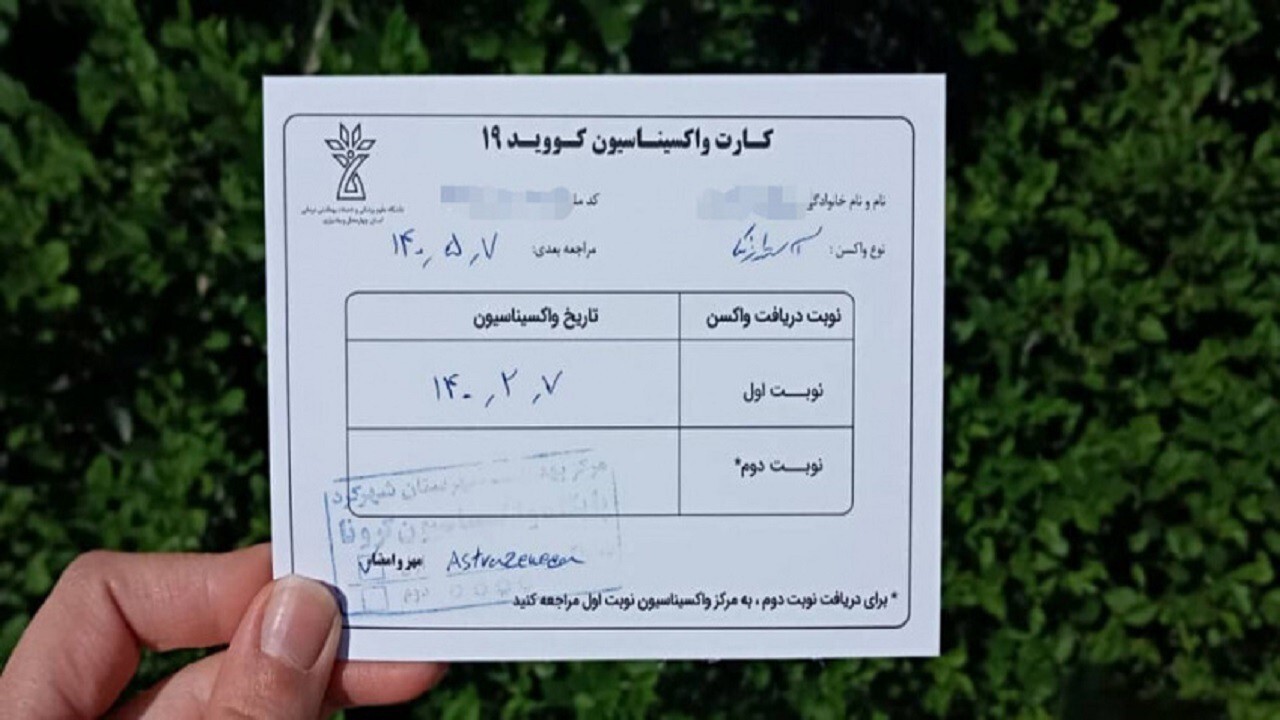 کارت واکسیناسیون کووید ۱۹
دانشگاه علوم پزشکی و خدمات بهداشتی درمانی
استان چهارمحال و بختیاری
نام و نام خانوادگی
کد مل
نوع واکسن : آسترازنکا
مراجعه بعدی: ۱۴۰۰٫۵٫۷
نوبت دریافت واکسن تاریخ واکسیناسیون
نوبت اول ۱۴۰۰٫۲٫۷
نوبت دوم*
شهرستان شهرکرد
واکسیناسیون کرونا
مهر و امضاء AstraZeneca
دوم
* برای دریافت نوبت دوم ، به مرکز واکسیناسیون نوبت اول مراجعه کنید